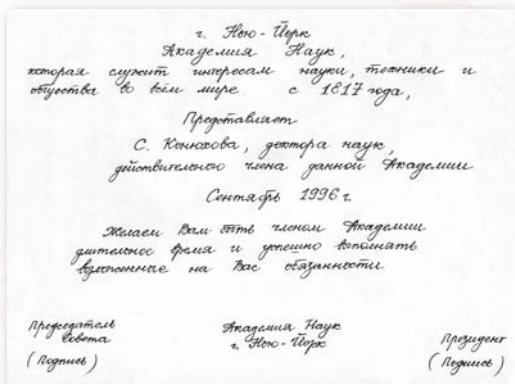 г. Нью-Йорк
Академия Наук,
которая служит интересам науки, техники и
общества во всём мире с 1817 года,
Представляет
С. Конюхова, доктора наук,
действительного члена данной Академии
Сентябрь 1996 г.
Желаем Вам быть членом Академии
длительное время и успешно выполнять
возложенные на Вас обязанности.
Председатель
Совета
(Подпись)
Академия Наук
г. Нью-Йорк
Президент
(Подпись)